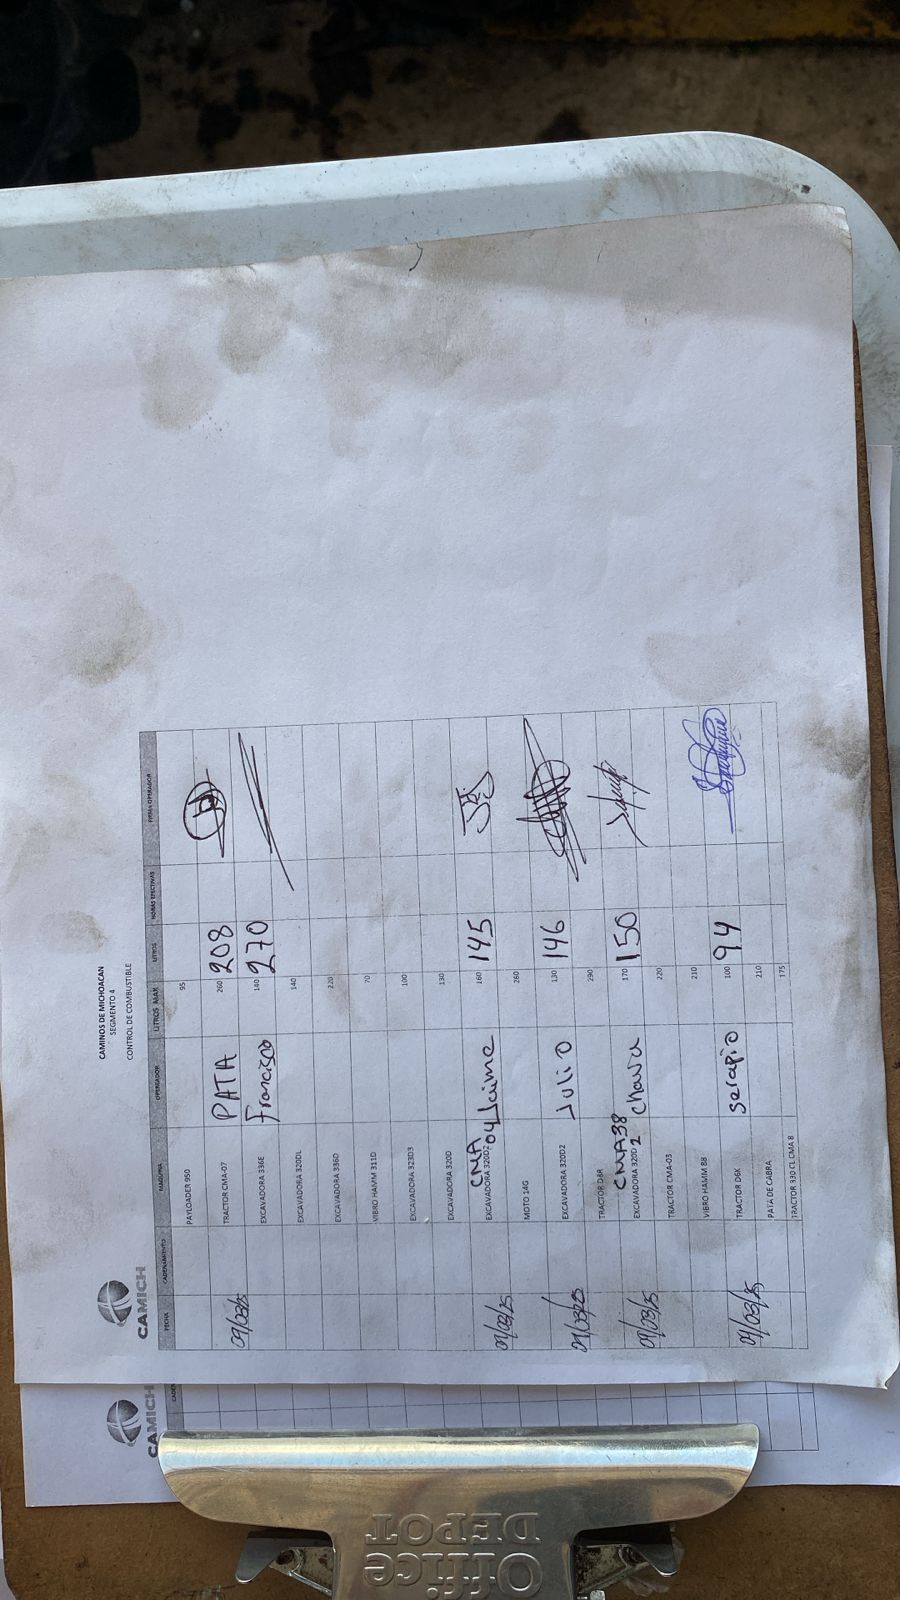 CAMICH
CAMICH
CADEN
CAMINOS DE MICHOACAN
SEGMENTO 4
CONTROL DE COMBUSTIBLE
FECHA CADENAMIENTO MAQUINA OPERADOR LITROS MAX LITROS HORAS EFECTIVAS FIRMA OPERADOR
PAYLOADER 950 95
09/03/25 TRACTOR CMA-07 PATA 260 208
EXCAVADORA 336E Francisco 140 270
EXCAVADORA 320DL 140
EXCAVADORA 336D 220
VIBRO HAMM 311D 70
EXCAVADORA 323D3 100
EXCAVADORA 320D 130
09/03/25 EXCAVADORA 320D2 CMA 04 Jaime 160 145
MOTO 14G 260
09/03/25 EXCAVADORA 320D2 Julio 130 146
TRACTOR D8R 290
09/03/25 EXCAVADORA 320D 2 CMA38 Chava 170 150
TRACTOR CMA-03 220
VIBRO HAMM 88 210
09/03/25 TRACTOR D6K serapio 100 94
PATA DE CABRA 210
TRACTOR 330 CL CMA 8 175
Office
DEPOT